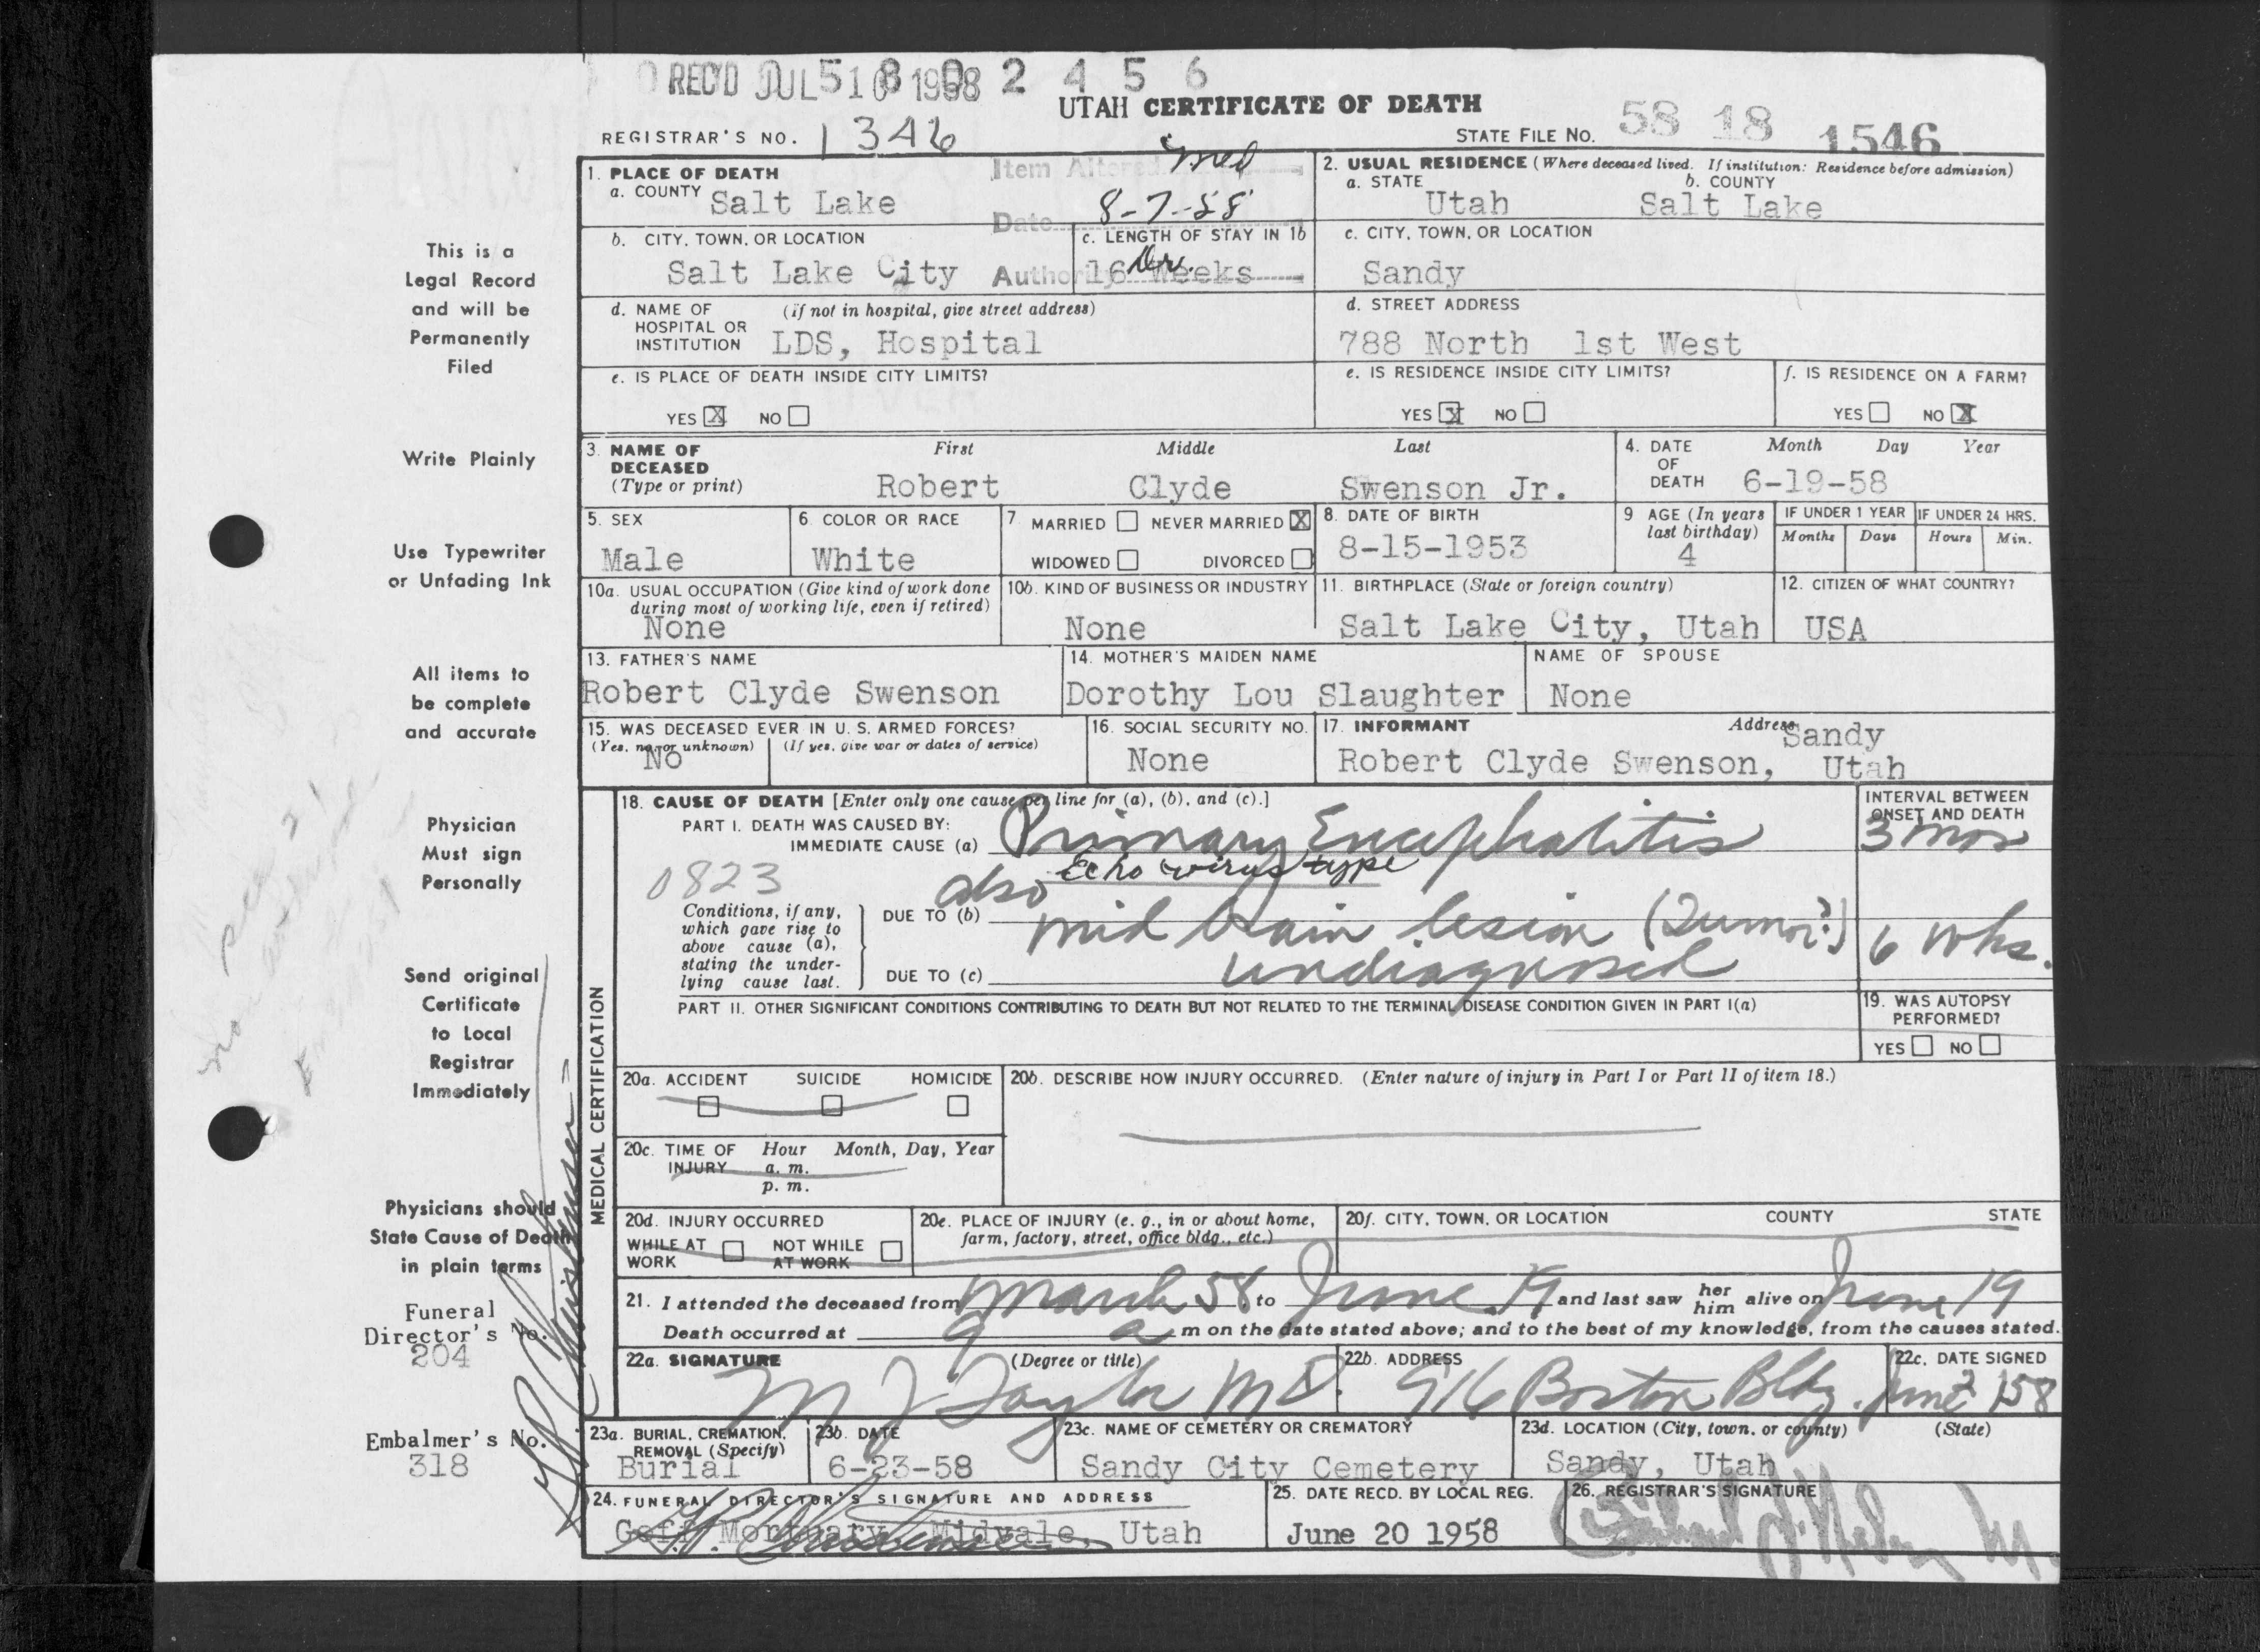 REC'D JUL 10 1958
58 02456
UTAH CERTIFICATE OF DEATH
REGISTRAR'S NO. 1346
STATE FILE No. 58 18 1546
Item Altered Med
Date 8-7-58
Authority Dr.
1. PLACE OF DEATH
a. COUNTY Salt Lake
2. USUAL RESIDENCE (Where deceased lived. If institution: Residence before admission)
a. STATE Utah b. COUNTY Salt Lake
b. CITY, TOWN, OR LOCATION Salt Lake City
c. LENGTH OF STAY IN 1b 16 Weeks
c. CITY, TOWN, OR LOCATION Sandy
d. NAME OF HOSPITAL OR INSTITUTION (if not in hospital, give street address) LDS, Hospital
d. STREET ADDRESS 788 North 1st West
e. IS PLACE OF DEATH INSIDE CITY LIMITS? YES X NO
e. IS RESIDENCE INSIDE CITY LIMITS? YES X NO
f. IS RESIDENCE ON A FARM? YES NO X
3. NAME OF DECEASED (Type or print) First Middle Last
Robert Clyde Swenson Jr.
4. DATE OF DEATH Month Day Year
6-19-58
5. SEX Male
6. COLOR OR RACE White
7. MARRIED NEVER MARRIED X
WIDOWED DIVORCED
8. DATE OF BIRTH 8-15-1953
9 AGE (In years last birthday) 4
IF UNDER 1 YEAR Months Days
IF UNDER 24 HRS. Hours Min.
10a. USUAL OCCUPATION (Give kind of work done during most of working life, even if retired) None
10b. KIND OF BUSINESS OR INDUSTRY None
11. BIRTHPLACE (State or foreign country) Salt Lake City, Utah
12. CITIZEN OF WHAT COUNTRY? USA
13. FATHER'S NAME Robert Clyde Swenson
14. MOTHER'S MAIDEN NAME Dorothy Lou Slaughter
NAME OF SPOUSE None
15. WAS DECEASED EVER IN U. S. ARMED FORCES?
(Yes, no, or unknown) No (If yes, give war or dates of service)
16. SOCIAL SECURITY NO. None
17. INFORMANT Address
Robert Clyde Swenson, Sandy Utah
MEDICAL CERTIFICATION
18. CAUSE OF DEATH [Enter only one cause per line for (a), (b), and (c).]
PART I. DEATH WAS CAUSED BY:
IMMEDIATE CAUSE (a) Primary Encephalitis
Echo virus type
INTERVAL BETWEEN ONSET AND DEATH
3 mos
0823
Conditions, if any, which gave rise to above cause (a), stating the underlying cause last.
also
DUE TO (b) mid brain lesion (Tumor?)
6 wks.
DUE TO (c) undiagnosed
PART II. OTHER SIGNIFICANT CONDITIONS CONTRIBUTING TO DEATH BUT NOT RELATED TO THE TERMINAL DISEASE CONDITION GIVEN IN PART I(a)
19. WAS AUTOPSY PERFORMED?
YES NO
20a. ACCIDENT SUICIDE HOMICIDE
20b. DESCRIBE HOW INJURY OCCURRED. (Enter nature of injury in Part I or Part II of item 18.)
20c. TIME OF INJURY Hour Month, Day, Year
a. m.
p. m.
20d. INJURY OCCURRED
WHILE AT WORK NOT WHILE AT WORK
20e. PLACE OF INJURY (e. g., in or about home, farm, factory, street, office bldg., etc.)
20f. CITY, TOWN, OR LOCATION COUNTY STATE
21. I attended the deceased from March 58 to June 19 and last saw her him alive on June 19
Death occurred at 9 a m on the date stated above; and to the best of my knowledge, from the causes stated.
22a. SIGNATURE (Degree or title) M J Taylor MD.
22b. ADDRESS 916 Boston Bldg.
22c. DATE SIGNED June 58
23a. BURIAL, CREMATION, REMOVAL (Specify) Burial
23b. DATE 6-23-58
23c. NAME OF CEMETERY OR CREMATORY Sandy City Cemetery
23d. LOCATION (City, town, or county) (State) Sandy, Utah
24. FUNERAL DIRECTOR'S SIGNATURE AND ADDRESS
Goff Mortuary, Midvale, Utah
25. DATE RECD. BY LOCAL REG. June 20 1958
26. REGISTRAR'S SIGNATURE
This is a
Legal Record
and will be
Permanently
Filed
Write Plainly
Use Typewriter
or Unfading Ink
All items to
be complete
and accurate
Physician
Must sign
Personally
Send original
Certificate
to Local
Registrar
Immediately
Physicians should
State Cause of Death
in plain terms
Funeral
Director's No.
204
Embalmer's No.
318